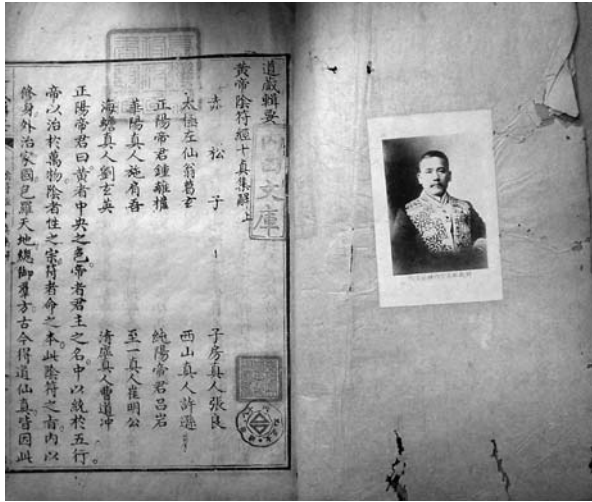 道藏輯要
黃帝陰符經十真集解上
赤松子 子房真人張良
太極左仙翁葛玄 西山真人許遜
正陽帝君鍾離權 純陽帝君呂岩
華陽真人施肩吾 至一真人崔明公
海蟾真人劉玄英 清虛真人曹道冲
正陽帝君曰黃者中央之色。帝者君主之名。中以統於五行。
帝以治於萬物。陰者性之宗。符者命之本。此陰符之旨。內以
修身。外治家國。包羅天地。總御羣方。古今得道仙真。皆因此
文庫